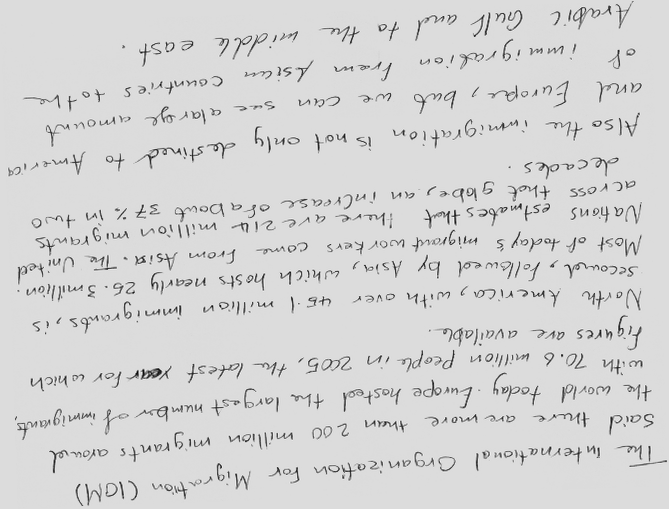 The International Organization for Migration (IOM)
said there are more than 200 million migrants around
the world today. Europe hosted the largest number of immigrants,
with 70.6 million people in 2005, the latest year for which
figures are available.
North America, with over 45.1 million immigrants, is,
second, followed by Asia, which hosts nearly 25.3 million.
Most of today's migrant workers come from Asia. The United
Nations estimates that there are 214 million migrants
across that globe, an increase of about 37% in two
decades.
Also the immigration is not only destined to America
and Europe, but we can see a large amount
of immigration from Asian countries to the
Arabic Gulf and to the middle east.